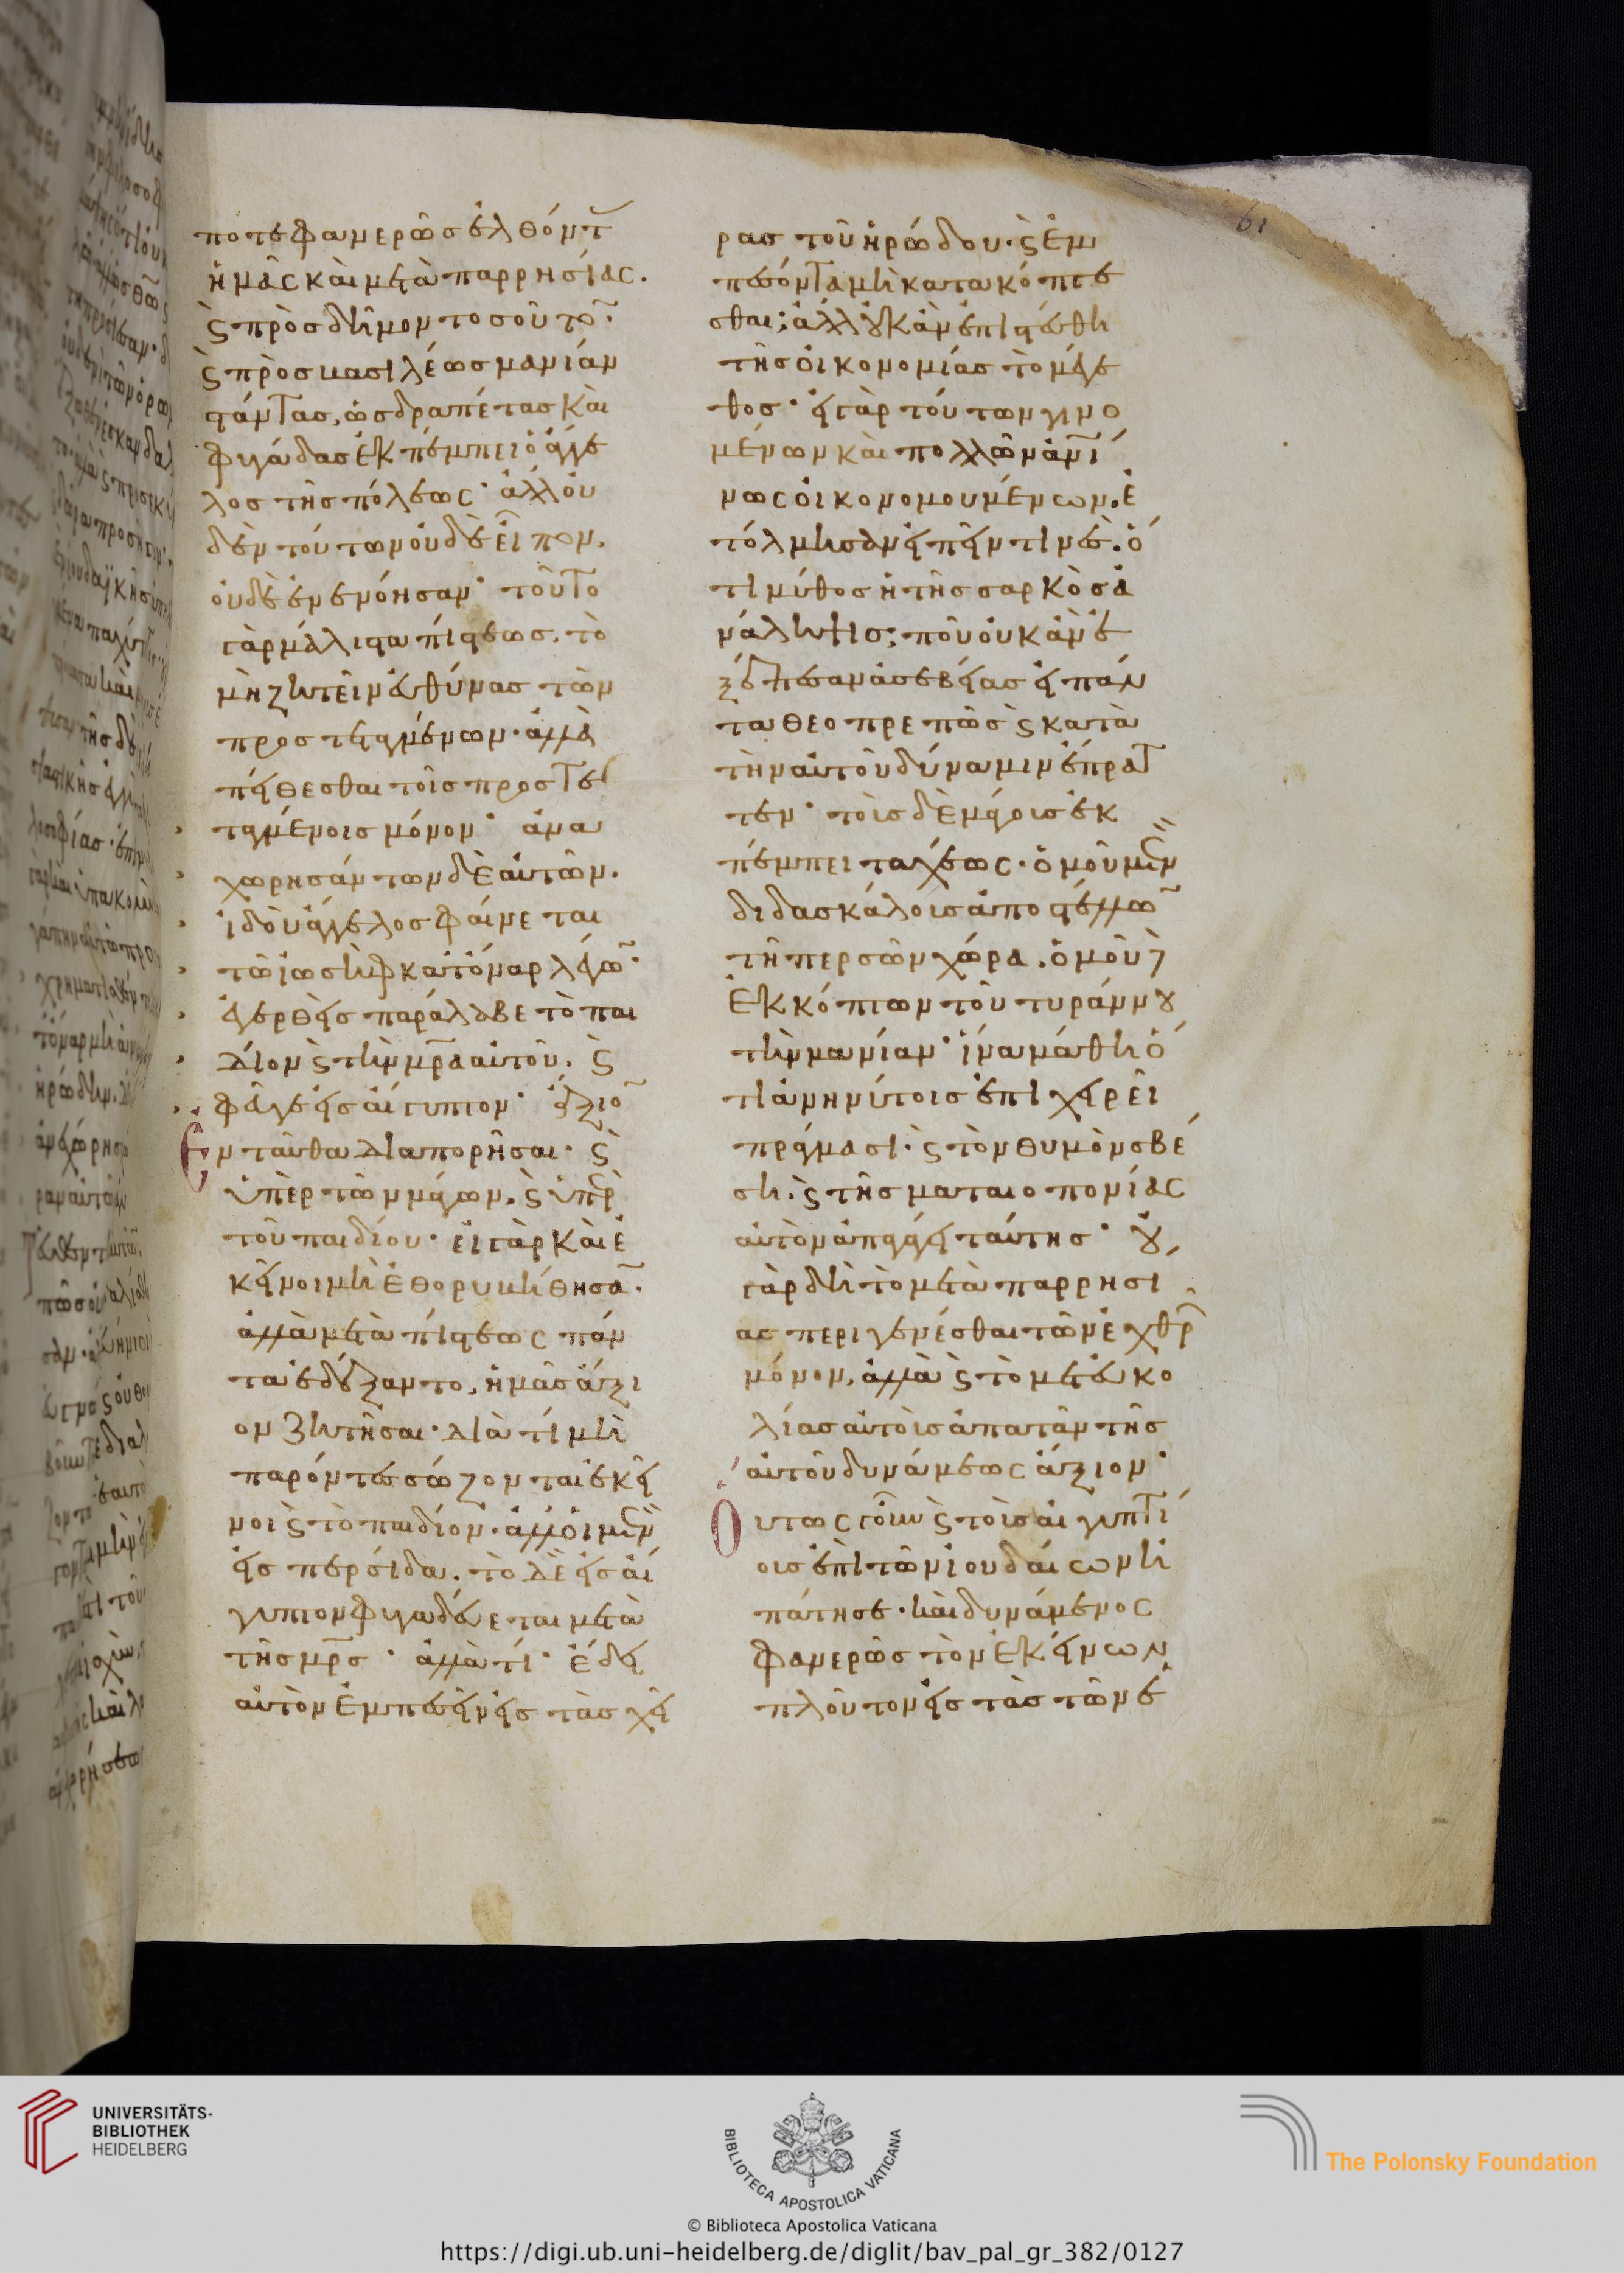 ποτε φανερῶς ἐλθόντ
ἡμᾶς καὶ μετὰ παρρησίας.
ϛ πρὸς δῆμον τοσοῦτο̅·
ϛ πρὸς βασιλέως μανίαν
στάντας, ὡς δραπέτας καὶ
φυγάδας ἐκπέμπει ὁ ἄγγε
λος τῆς πόλεως· ἀλλ' οὐ
δὲν τούτων οὐδὲ εἶπον.
οὐδὲ ἐνενόησαν· τοῦτο
γὰρ μάλιστα πίστεως. τὸ
μὴ ζητεῖν εὐθύνας τῶν
προστεταγμένων· ἀλλὰ
πείθεσθαι τοῖς προστε
ταγμένοις μόνον· ἀνα
χωρησάντων δὲ αὐτῶν.
ἰδοὺ ἄγγελος φαίνεται
τῷ ἰωσὴφ κατ' ὄναρ λέγω̅·
ἐγερθεὶς παράλαβε τὸ παι
δίον ϛ τὴν μ̅ρ̅α αὐτοῦ. ϛ
φεῦγε εἰς αἴγυπτον· ἄξιο̅
Ἐνταῦθα διαπορῆσαι· ϛ
ὑπὲρ τῶν μάγων. ϛ ὑπὲρ
τοῦ παιδίου· εἰ γὰρ καὶ ἐ
κεῖνοι μὴ ἐθορυβήθησα̅.
ἀλλὰ μετὰ πίστεως πάν
τα ἐδέξαντο, ἡμᾶς ἄξι
ον ζητῆσαι· διὰ τί μὴ
παρόντες σώζονται ἐκεῖ
νοι ϛ τὸ παιδίον· ἀλλ' οἱ μὲν
εἰς περσίδα. τὸ δὲ εἰς αἴ
γυπτον φυγαδεύεται μετὰ
τῆς μ̅ρ̅ς· ἀλλὰ τί· ἔδει
αὐτὸν ἐμπεσεῖν εἰς τὰς χεῖ
61
ρας τοῦ ἡρώδου· ϛ ἐμ
πεσόντα μὴ κατακόπτε
σθαι; ἀλλ' οὐκ ἂν ἐπιστεύθη
τῆς οἰκονομίας τὸ μέγε
θος· εἰ γὰρ τούτων γινο
μένων καὶ πολλῶν ἀν̅ί
νως οἰκονομουμένων. ἐ
τόλμησαν εἰπεῖν τινὲς. ὅ
τι μύθος ἡ τῆς σαρκὸς ἀ
νάληψις; ποῦ οὐκ ἂν ἐ
ξέπεσαν ἀσεβείας εἰ πάν
τα θεοπρεπῶς ϛ κατὰ
τὴν αὐτοῦ δύναμιν ἔπρατ
τεν· τοὺς δὲ μάγους ἐκ
πέμπει ταχέως· ὁμοῦ μὲν
διδασκάλους ἀποστέλλω̅
τῆ περσῶν χώρα. ὁμοῦ δὲ
ἐκκόπτων τοῦ τυράννου
τὴν μανίαν· ἵνα μάθη ὅ
τι ἀνηνύτοις ἐπιχειρεῖ
πράγμασι· ϛ τὸν θυμὸν σβέ
ση. ϛ τῆς ματαιοπονίας
αὐτὸν ἀπαγάγη ταύτης· οὐ
γὰρ δὴ τὸ μετὰ παρρησί
ας περιγενέσθαι τῶν ἐχθρ
μόνον, ἀλλὰ ϛ τὸ μετ' εὐκο
λίας αὐτοὺς ἀπατᾶν τῆς
αὐτοῦ δυνάμεως ἄξιον·
Οὕτως γοῦν ϛ τοὺς αἰγυπτί
ους ἐπὶ τῶν ἰουδαίων ἠ
πάτησε. καὶ δυνάμενος
φανερῶς τὸν ἐκείνων
πλοῦτον εἰς τὰς τῶν ἑ
UNIVERSITÄTS-
BIBLIOTHEK
HEIDELBERG
BIBLIOTECA APOSTOLICA VATICANA
The Polonsky Foundation
© Biblioteca Apostolica Vaticana
https://digi.ub.uni-heidelberg.de/diglit/bav_pal_gr_382/0127